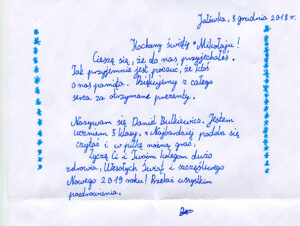 Jatówka, 5 grudnia 2018 r.
Kochany Święty Mikołaju!
Cieszę się, że do nas przyjechałeś.
Jak przyjemnie jest poczuć, że ktoś
o nas pamięta. Dziękujemy z całego
serca za otrzymane prezenty.
Nazywam się Daniel Bulkiewicz. Jestem
uczniem 5 klasy. Najbardziej podoba się
czytać i w piłkę nożną grać.
Życzę Ci i Twoim kolegom dużo
zdrowia, Wesołych Świąt i szczęśliwego
Nowego 2019 roku! Przekaż wszystkim
pozdrowienia.